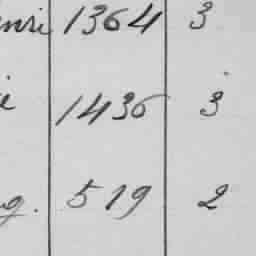 nri 1364 3
e 1436 3
g. 519 2